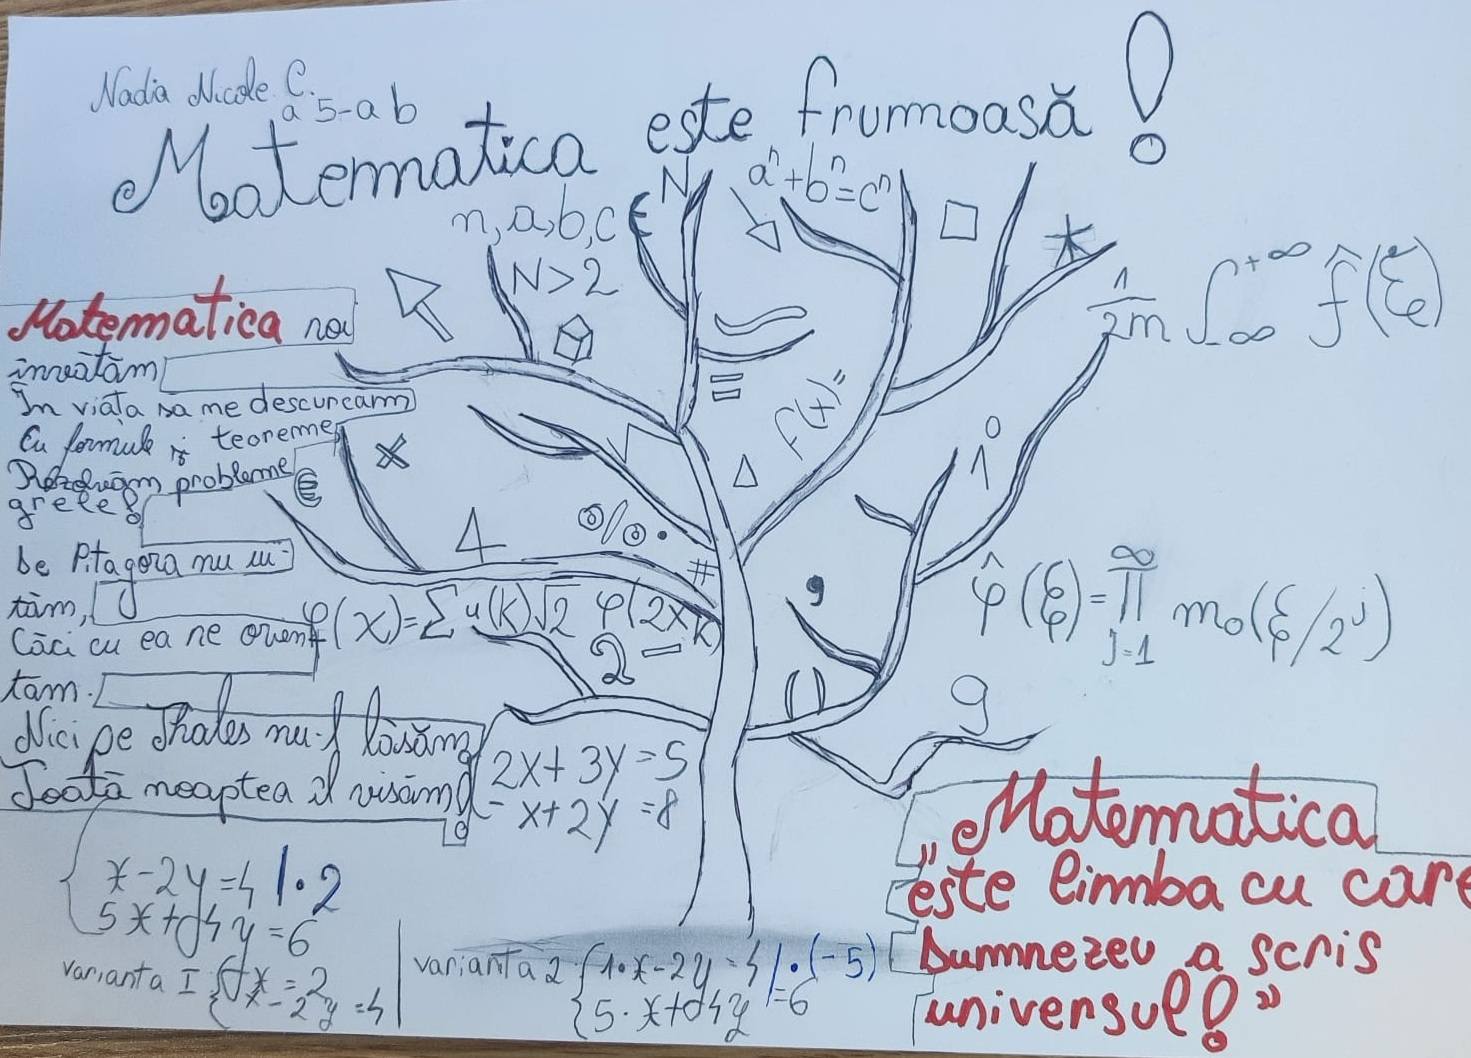 Nadia Nicole C.
a 5-a b
Matematica este frumoasă!
n, a, b, c ∈ N
aⁿ+bⁿ=cⁿ
N>2
1/2m ∫ +∞ -∞ f̂(ξ)
Matematica noi
învătăm
În viața sa ne descurcam
Cu formule și teoreme
Rezolvăm probleme
grele!
De Pitagora nu ui-
tăm,
Căci cu ea ne orien-
tam.
Nici pe Thales nu-l lăsăm
Toată noaptea îl visăm!
f(x)=
√
%.
#
4
€
1
0
,
()
9
φ(x)=∑u(k)√2 φ(2x-k)
2
φ̂(ξ)=∏ ∞ j=1 m₀(ξ/2ʲ)
2x+3y=5
-x+2y=8
x-2y=4 |·2
5x+4y=6
varianta I x=2
x-2y=4
varianta 2 1·x-2y=4 |·(-5)
5·x+4y=6
„Matematica
este limba cu care
Dumnezeu a scris
universul!”